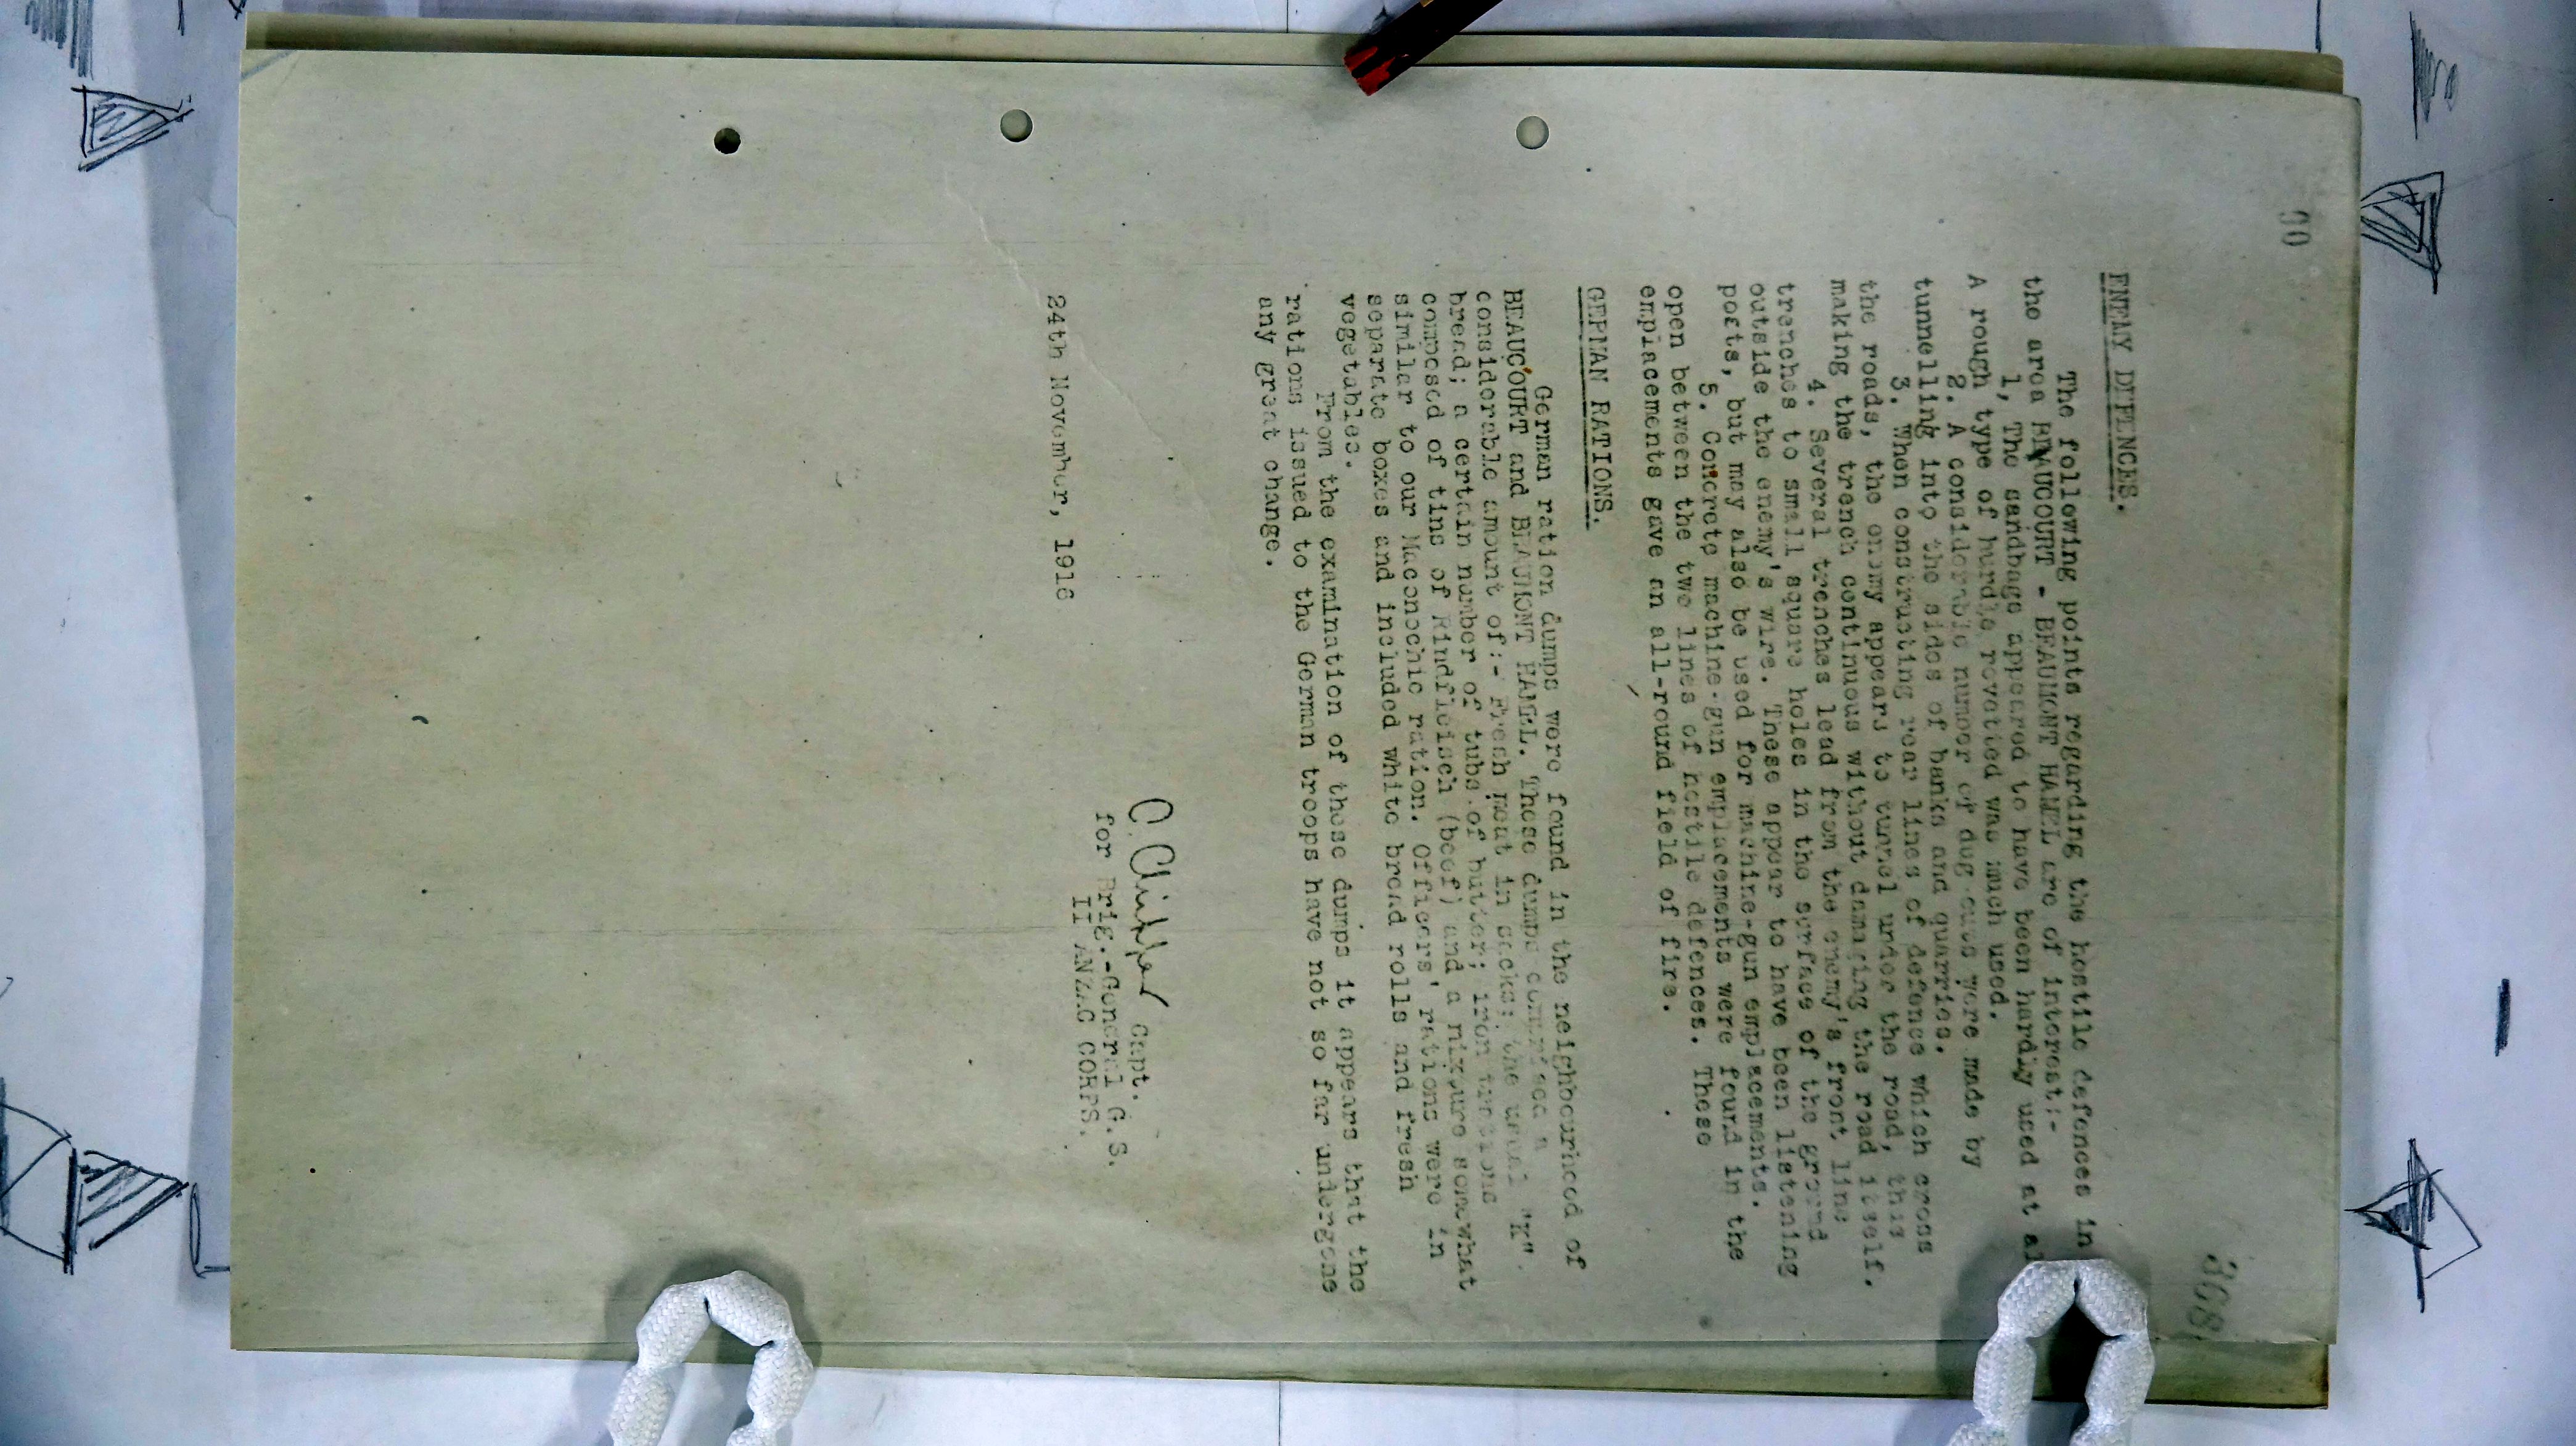 30
308
ENEMY DEFENCES.
The following points regarding the hostile defences in
the area BEAUCOURT - BEAUMONT HAMEL are of interest:-
1, The sandbags appeared to have been hardly used at
A rough type of hurdle revetted was much used.
2. A considerable number of dug-outs were made by
tunnelling into the sides of banks and quarries.
3. When constructing rear lines of defence which cross
the roads, the enemy appears to tunnel under the road, this
making the trench continuous without damaging the road itself.
4. Several trenches lead from the enemy's front line
trenches to small square holes in the surface of the ground
outside the enemy's wire. These appear to have been listening
posts, but may also be used for machine-gun emplacements.
5. Concrete machine-gun emplacements were found in the
open between the two lines of hostile defences. These
emplacements gave an all-round field of fire.
GERMAN RATIONS.
German ration dumps were found in the neighbourhood of
BEAUCOURT and BEAUMONT HAMEL. These dumps comprised a
considerable amount of:- Fresh meat in sacks; the usual "K".
bread; a certain number of tubs of butter; iron rations
composed of tins of Rindfleisch (beef) and a mixture somewhat
similar to our Maconochie ration. Officers' rations were in
separate boxes and included white bread rolls and fresh
vegetables.
From the examination of these dumps it appears that the
rations issued to the German troops have not so far undergone
any great change.
Capt.
for Brig.-General G.S.
II ANZAC CORPS.
24th November, 1916